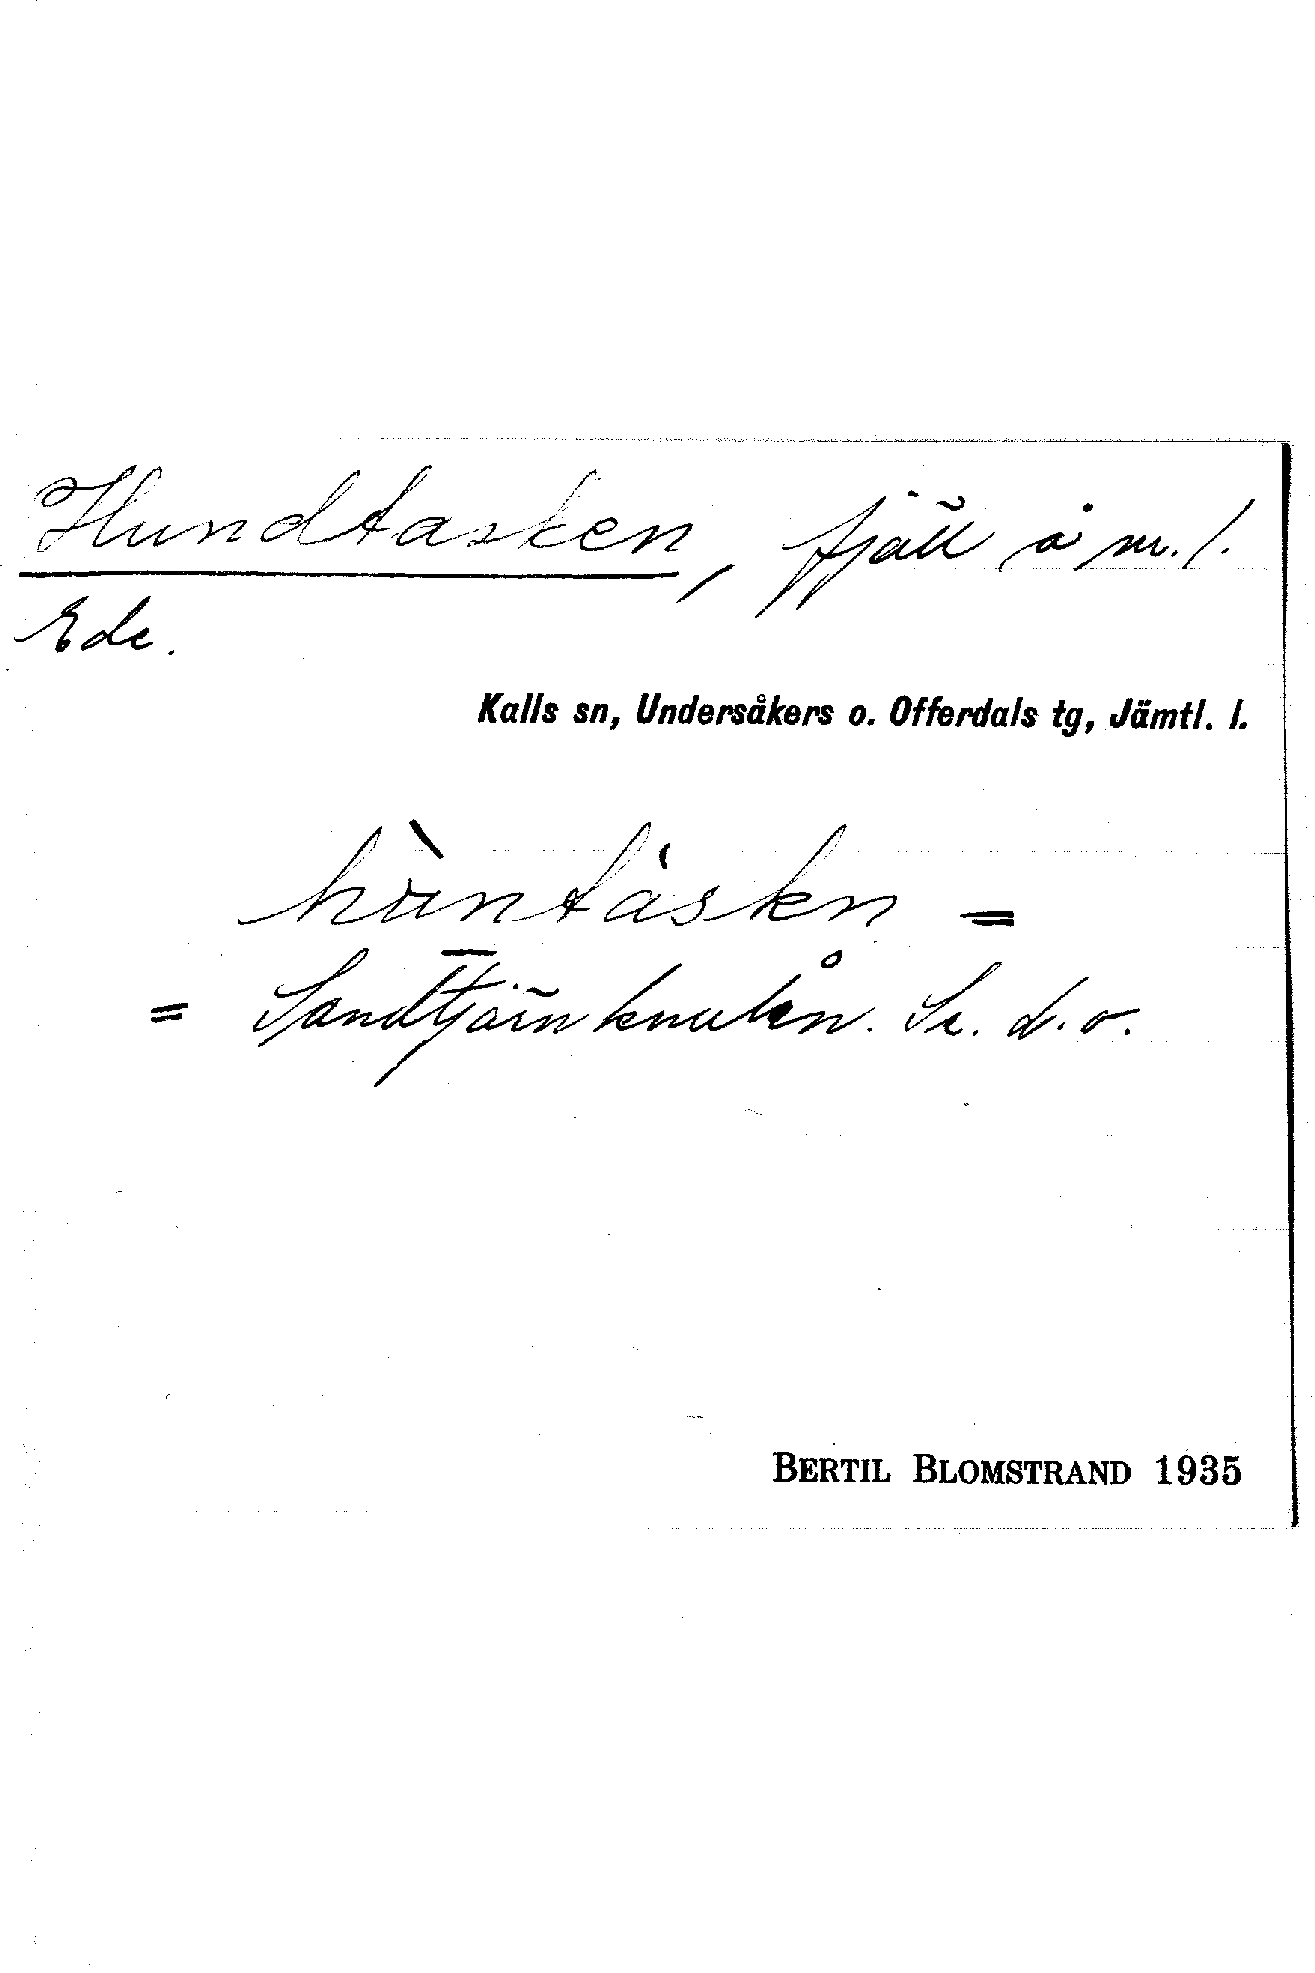 Hundtasken, fjäll å m. l.
Ede.
Kalls sn, Undersåkers o. Offerdals tg, Jämtl. l.
hùntáskn =
= Sandtjärnknulen. Se. d. o.
BERTIL BLOMSTRAND 1935